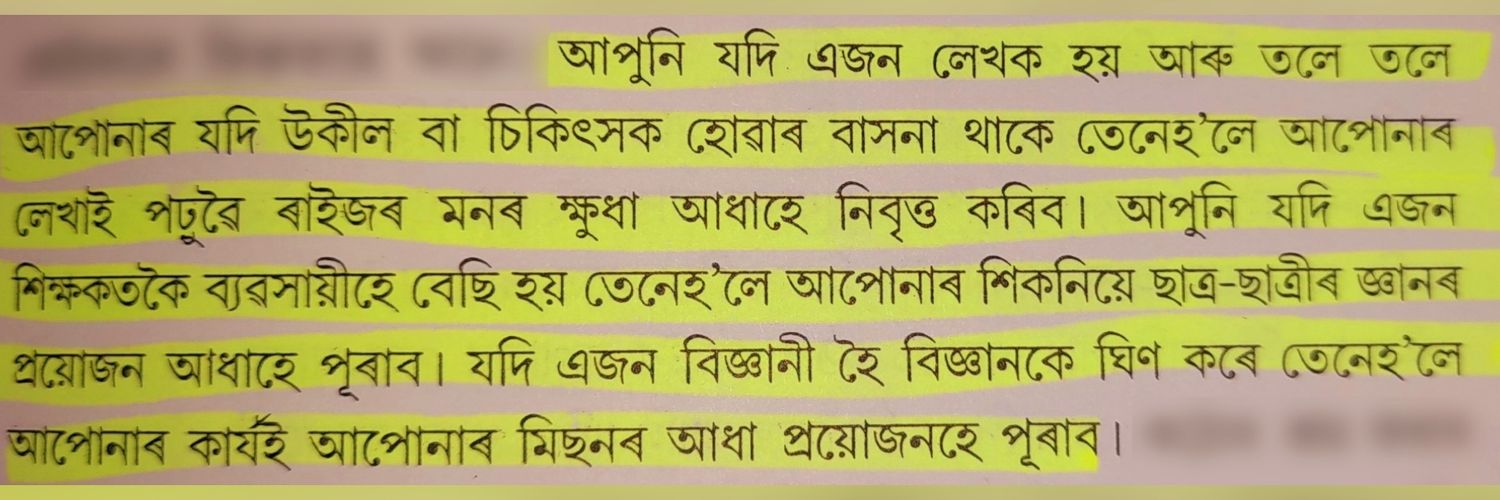 আপুনি যদি এজন লেখক হয় আৰু তলে তলে
আপোনাৰ যদি উকীল বা চিকিৎসক হোৱাৰ বাসনা থাকে তেনেহ’লে আপোনাৰ
লেখাই পঢ়ুৱৈ ৰাইজৰ মনৰ ক্ষুধা আধাহে নিবৃত্ত কৰিব। আপুনি যদি এজন
শিক্ষকতকৈ ব্যৱসায়ীহে বেছি হয় তেনেহ’লে আপোনাৰ শিকনিয়ে ছাত্ৰ-ছাত্ৰীৰ জ্ঞানৰ
প্ৰয়োজন আধাহে পূৰাব। যদি এজন বিজ্ঞানী হৈ বিজ্ঞানকে ঘিণ কৰে তেনেহ’লে
আপোনাৰ কাৰ্যই আপোনাৰ মিছনৰ আধা প্ৰয়োজনহে পূৰাব।